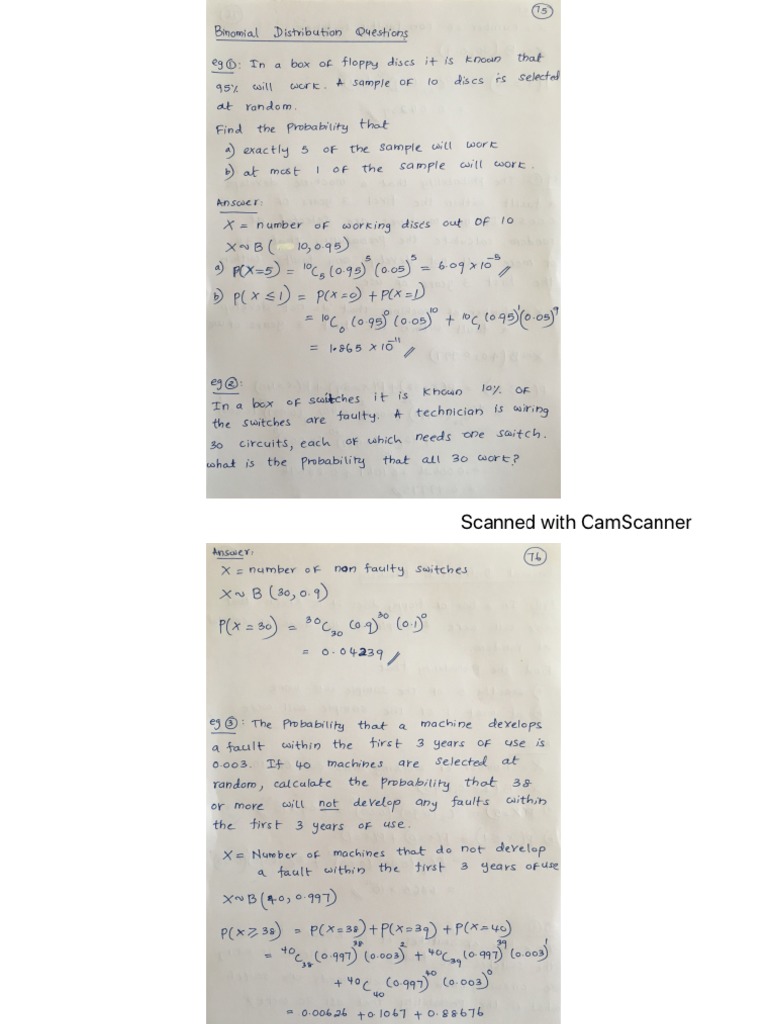 75
Binomial Distribution Questions
eg ①: In a box of floppy discs it is known that
95% will work. A sample of 10 discs is selected
at random.
Find the Probability that
a) exactly 5 of the sample will work
b) at most 1 of the sample will work.
Answer:
X = number of working discs out of 10
X~B( 10, 0.95)
a) P(X=5) = ¹⁰C₅ (0.95)⁵ (0.05)⁵ = 6.09 × 10⁻⁵ //
b) P(X ≤ 1) = P(X=0) + P(X=1)
= ¹⁰C₀ (0.95)⁰ (0.05)¹⁰ + ¹⁰C₁ (0.95)¹ (0.05)⁹
= 1.865 × 10⁻¹¹ //
eg ②:
In a box of switches it is known 10% of
the switches are faulty. A technician is wiring
30 circuits, each of which needs one switch.
what is the Probability that all 30 work?
Scanned with CamScanner
76
Answer:
X = number of non faulty switches
X~ B (30, 0.9)
P(X = 30) = ³⁰C₃₀ (0.9)³⁰ (0.1)⁰
= 0.04239 //
eg ③: The Probability that a machine develops
a fault within the first 3 years of use is
0.003. If 40 machines are selected at
random, calculate the Probability that 38
or more will not develop any faults within
the first 3 years of use.
X = Number of machines that do not develop
a fault within the first 3 years of use
X~B(40, 0.997)
P(X ≥ 38) = P(X=38) + P(X=39) + P(X=40)
= ⁴⁰C₃₈ (0.997)³⁸ (0.003)² + ⁴⁰C₃₉ (0.997)³⁹ (0.003)¹
+ ⁴⁰C₄₀ (0.997)⁴⁰ (0.003)⁰
= 0.00626 + 0.1067 + 0.88676